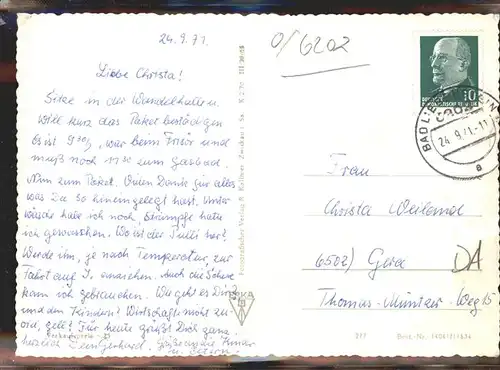 24.9.71.
0/6202
Liebe Christa!
Sitze in der Wandelhalle u.
will kurz das Paket bestätigen
Es ist 9³⁰, war beim Frisör und
muß noch 11³⁰ zum Gasbad.
Nun zum Paket. Vielen Dank für alles
was Du so hineingelegt hast. Unter
wäsche habe ich noch. Strümpfe hatte
ich gewaschen. Wo ist der Pulli her?
Werde ihn, je nach Temperatur, zur
Fahrt auf J. anziehen. Auch die Schere
kann ich gebrauchen. Wie geht es Dir
und den Kindern? Wirtschafte nicht zu
viel, gell? Für heute grüßt Dich ganz
herzlich Dein Gerhard. Grüße an die Kinder
u. Eltern.
Fotografischer Verlag R. Kallmer Zwickau
10
DEUTSCHE
DEMOKRATISCHE REPUBLIK
BAD LIEBENSTEIN
24.-9.71.-11
a
Frau
Christa Weiland
6502) Gera
DA
Thomas-Müntzer-Weg 15
Best.-Nr.